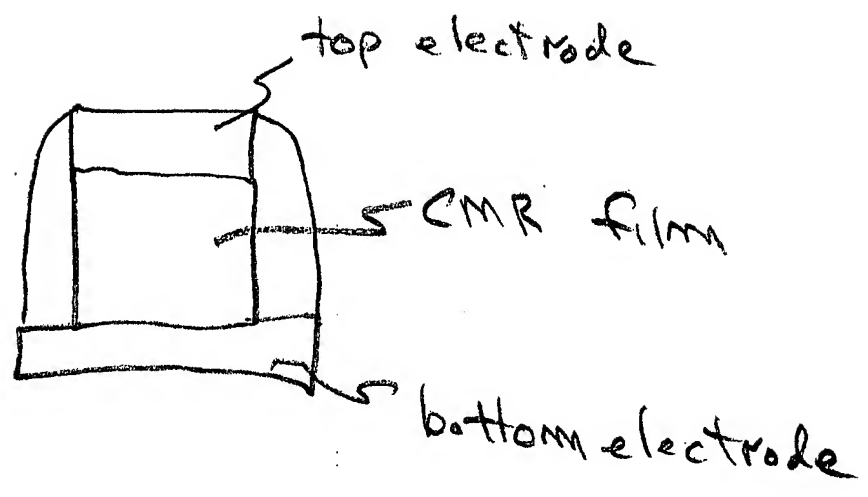 top electrode
CMR film
bottom electrode